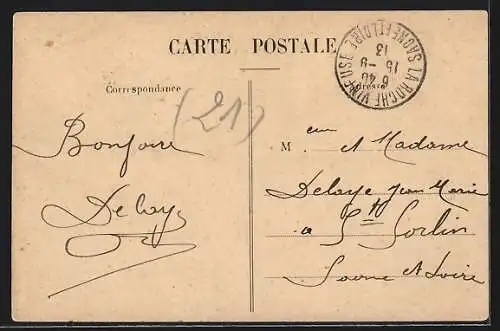 CARTE POSTALE
Correspondance
Adresse
LA ROCHE VINEUSE
SAONE ET LOIRE
6 40
15 - 9
13
(21)
Bonjour
Delaye
M eur et Madame
Delaye Jean Marie
a St Sorlin
Saone et Loire